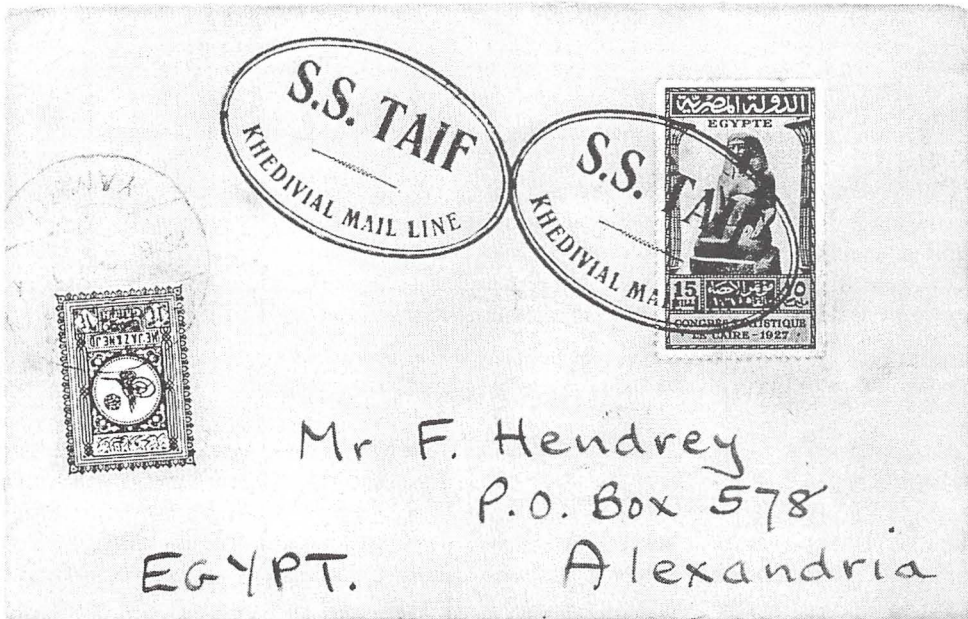 S.S. TAIF
KHEDIVIAL MAIL LINE
S.S. TA
KHEDIVIAL MA
الدولة المصرية
EGYPTE
15
CONGRÈS STATISTIQUE
LE CAIRE - 1927
HEJAZ & NEJD
Mr F. Hendrey
P.O. Box 578
EGYPT. Alexandria